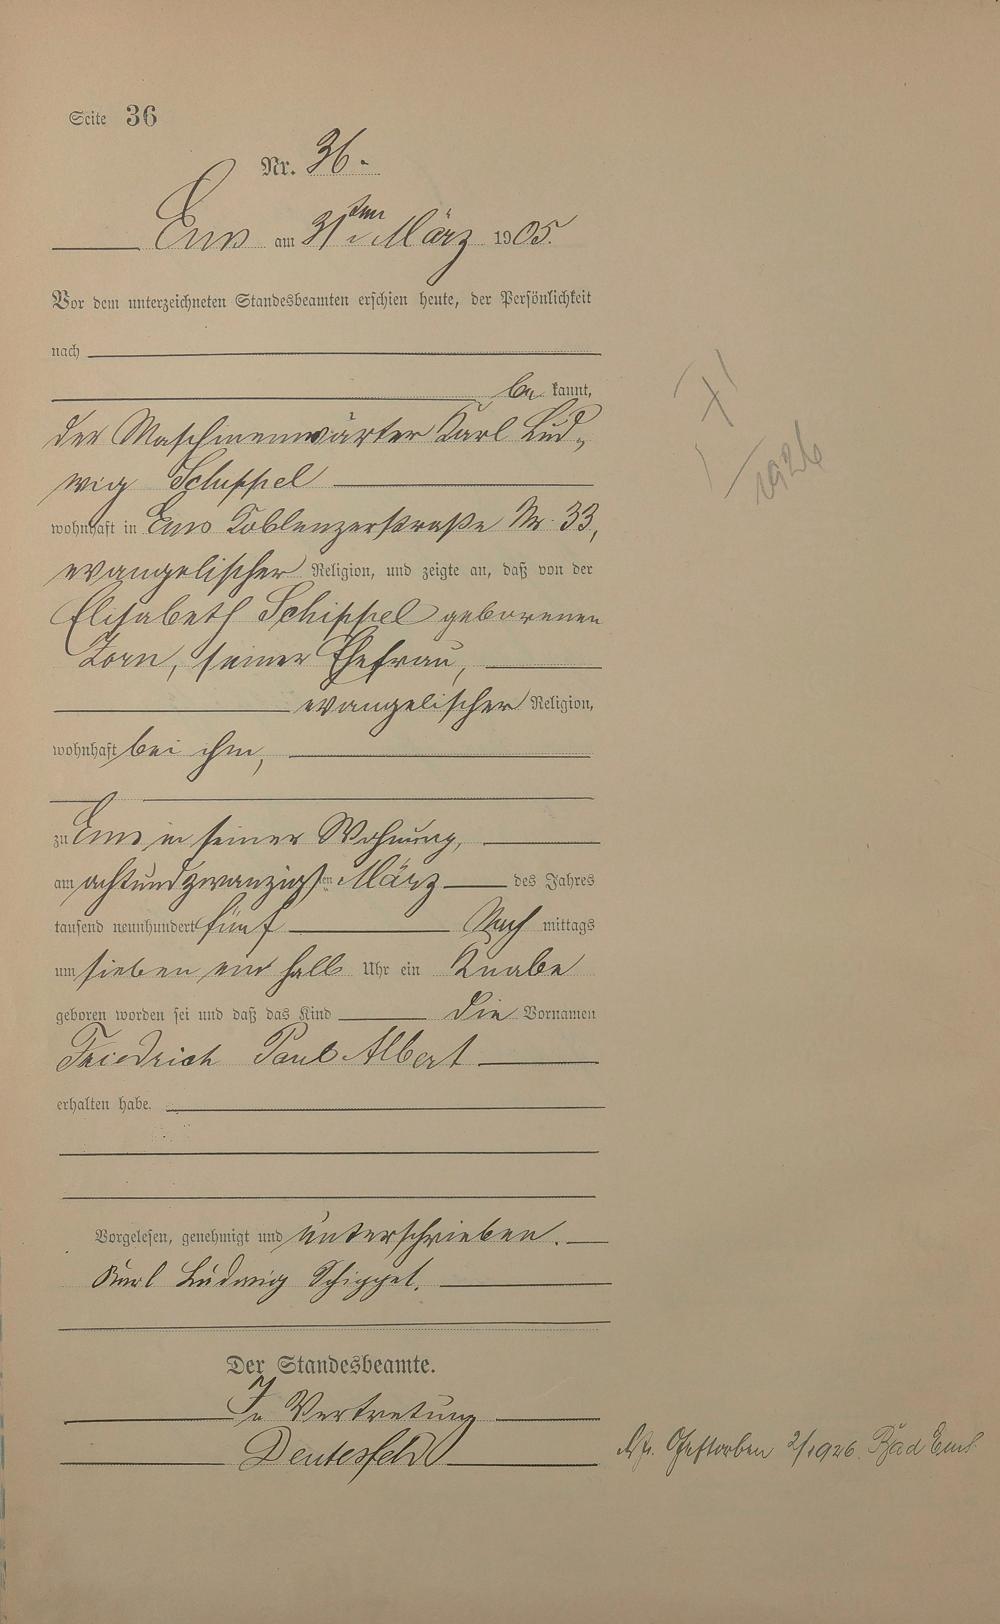 Seite 36
Nr. 36.
Ems am 31ten März 1905.
Vor dem unterzeichneten Standesbeamten erschien heute, der Persönlichkeit
nach
be kannt,
der Maschinenwärter Karl Lud-
wig Schippel
wohnhaft in Ems Coblenzerstraße Nr. 33,
evangelischer Religion, und zeigte an, daß von der
Elisabeth Schippel geborenen
Zorn, seiner Ehefrau,
evangelischer Religion,
wohnhaft bei ihm,
zu Ems in seiner Wohnung,
am achtundzwanzigsten März des Jahres
tausend neunhundert fünf Nach mittags
um sieben ein halb Uhr ein Knabe
geboren worden sei und daß das Kind die Vornamen
Friedrich Paul Albert
erhalten habe.
Vorgelesen, genehmigt und unterschrieben.
Karl Ludwig Schippel.
Der Standesbeamte.
In Vertretung
Deutesfeld
† 1926
Gestorben 2/1926 Bad Ems